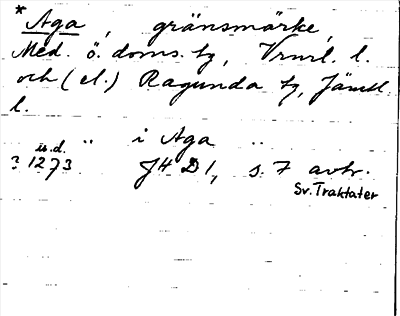 * Aga, gränsmärke,
Med. ö. doms. tg, Vrml. l.
och (el.) Ragunda tg, Jämtl.
l.
" i Aga "
u.d.
? 1273 JH D 1, s. 7 avtr.
Sv. Traktater